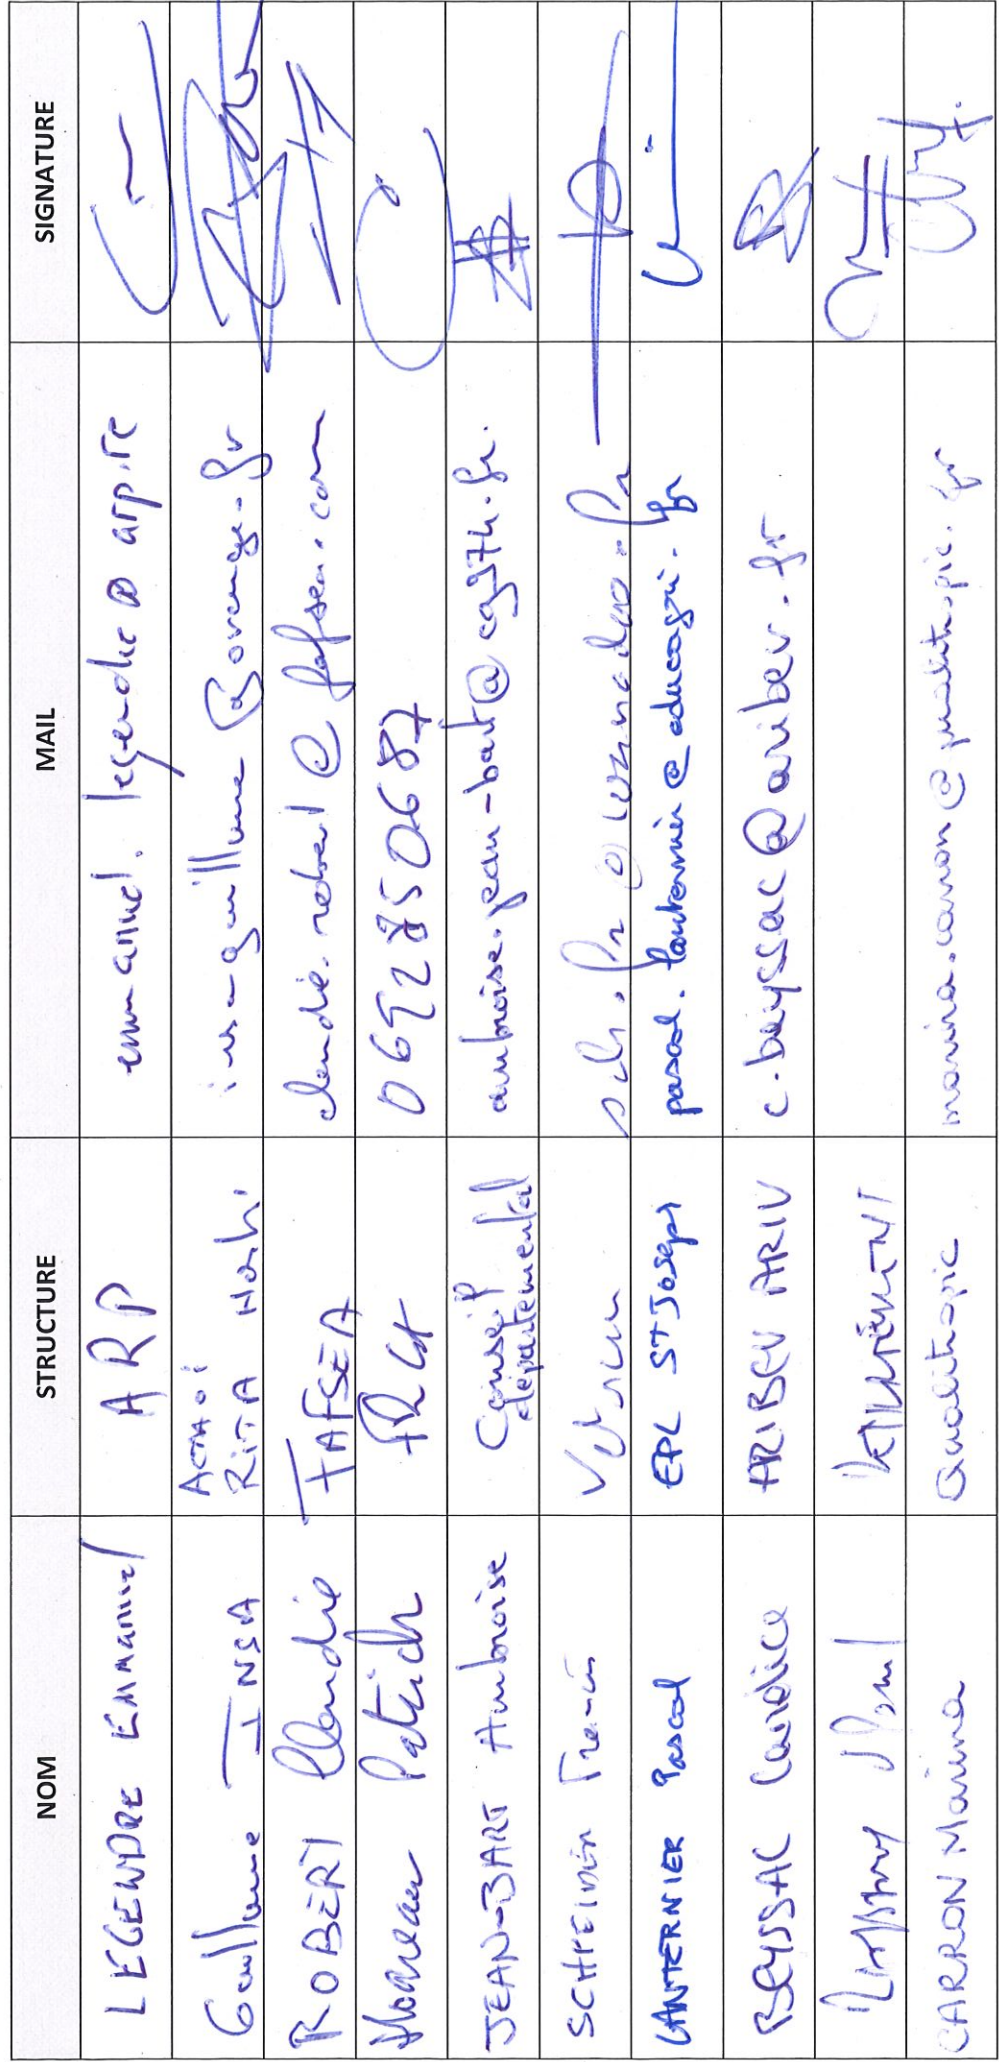 NOM STRUCTURE MAIL SIGNATURE
LEGENDRE Emmanuel ARP emmanuel.legendre@arp.re
Guillaume INSA
ACTA OI
RITA Horti
ROBERT Claudie FAFSEA claudie.robert@fafsea.com
Hoareau Patrick 0692850687
JEAN-BART Ambroise
Conseil
départemental
ambroise.jean-bart@cg974.fr.
SCHNEIDER
LANTERNIER Pascal EPL ST Joseph pascal.lanternier@educagri.fr
BEYSSAC Candice ARIBEV ARIV c.beyssac@aribev.fr
CARRON Marina Qualitropic marina.carron@qualitropic.fr